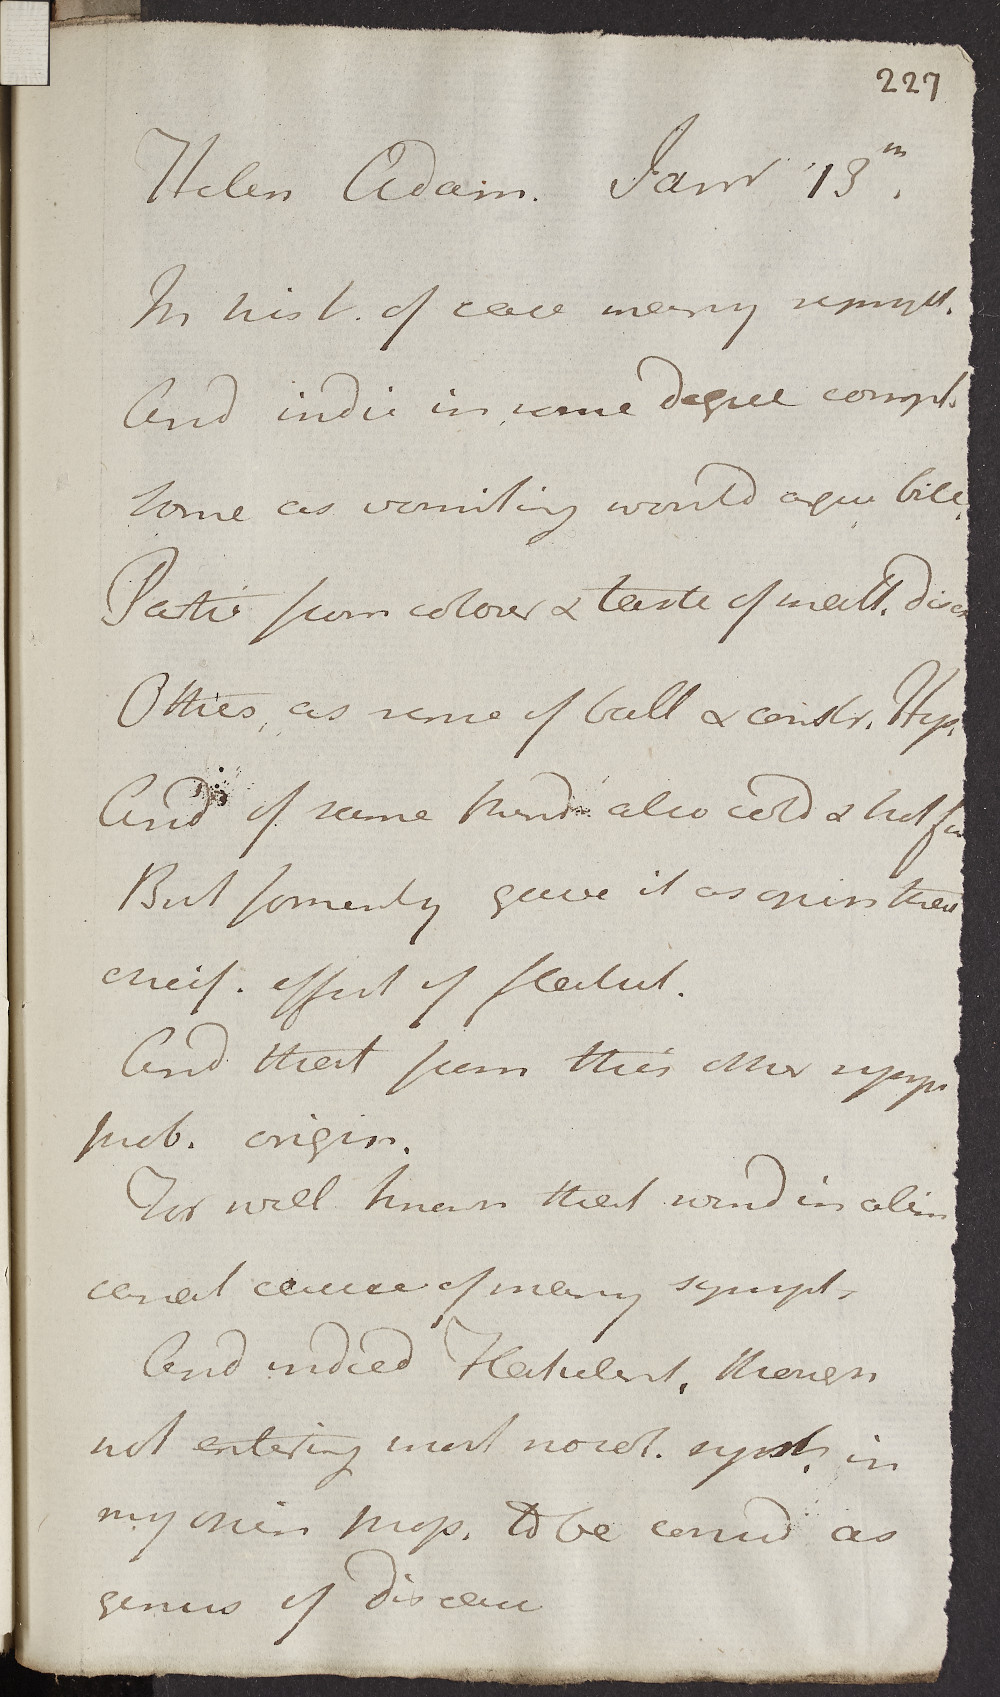 227
Helen Adam. Janr 13th.
In hist. of case many sympt.
And indic in some degree compl.
Some as vomiting would argue bile,
Partic from colour & taste of matt. disc
Others, as sense of ball & constr. Hys.
And of same kind also cold & hot
But formerly gave it as opin these
chief. effect of flatul.
And that from this other symp
prob. origin.
For well known that wind in alim
canal cause of many sympt.
And indeed Flatulent, though
not entering most nosol. syst. in
my opin prop. to be consid as
genus of disease